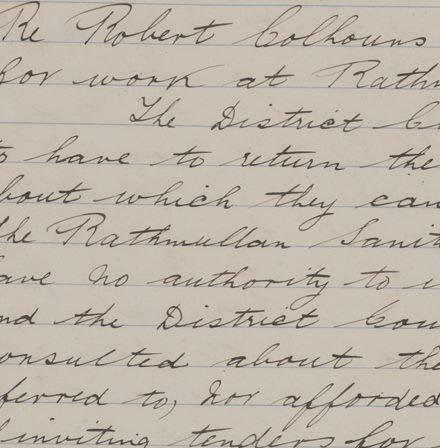 Re Robert Colhouns
for work at Rathm
The District Co
to have to return the
bout which they can
the Rathmullan Sanit
ave no authority to i
nd the District Cou
onsulted about the
ferred to, nor afforded
inviting tenders for